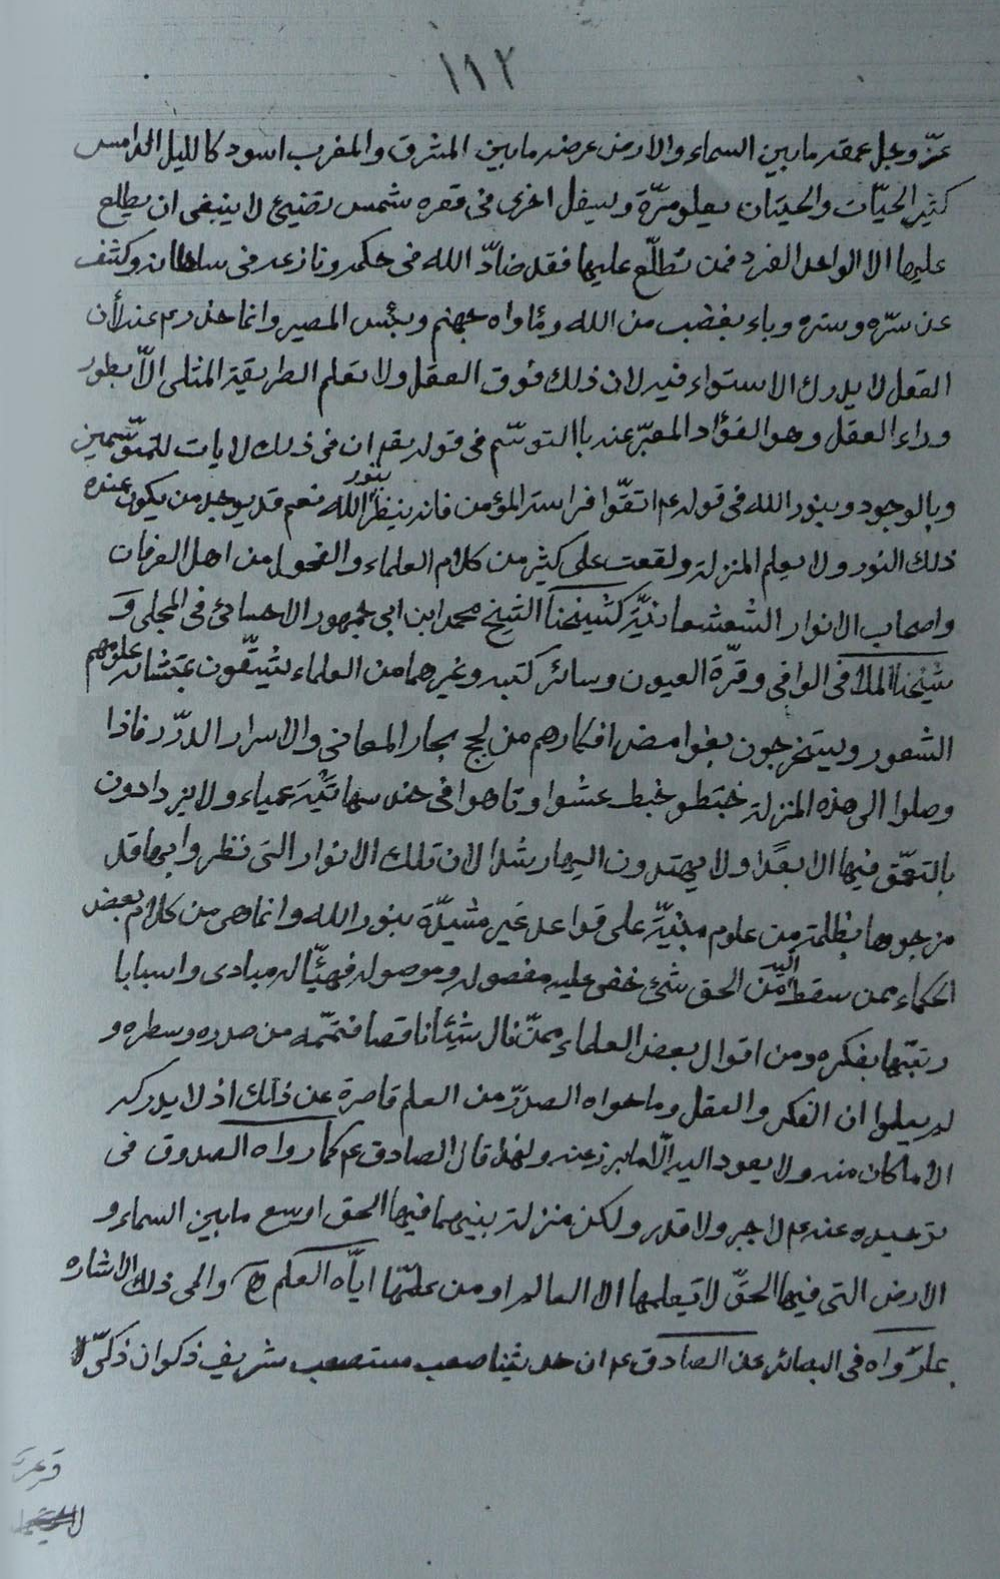 ١١٢
عزّ وجل عمقه مابين السماء والارض عرضه مابين المشرق والمغرب اسود كالليل الدامس
كثير الحيّات والحيتان يعلو مرّة ويسفل اخرى فى قعره شمس تضيئ لا ينبغى ان يطلع
عليها الا الواحد الفرد فمن تطلّع عليها فقد ضادّ الله فى حكمه ونازعه فى سلطانه وكشف
عن سرّه وستره وباء بغضب من الله ومأواه جهنم وبئس المصير وانما حذر ع عنه لأن
العقل لا يدرك الاستواء فيه لان ذلك فوق العقل ولا يعلم الطريقة المثلى الّا بطور
وراء العقل وهو الفؤاد المعبّر عنه باالتوسّم فى قوله تع ان فى ذلك لايات للمتوسّمين
وبالوجود وبنور الله فى قوله ع اتقّوا فراسة المؤمن فانه ينظر بنور الله نعم قد يوجد من يكون عنده
ذلك النور ولا يعلم المنزلة ولقعت على كثير من كلام العلماء والفحول من اهل العرفان
واصحاب الانوار الشعشعانيّة كشيخنا الشيخ محمد ابن ابى جمهور الاحسائى فى المجلى و
شيخنا الملا فى الوافى وقرّة العيون وسائر كتبه وغيرهما من العلماء يشيّقون علومهم
الشعور ويستخرجون بغوامض افكارهم من لجج بحار المعانى والاسرار الدرّر فاذا
وصلوا الى هذه المنزلة خبطو خبط عشوا وتاهوا فى حندسها تيْهَ عمياء ولا يزدادون
بالتعمّق فيها الا بعدًا ولا يهتدون اليها رشدا لان تلك الانوار التى نظروا بها قد
مزجوها بظلمة من علوم مبنيّة على قواعد غير مشيّدة بنور الله وانما هى من كلام بعض
الحكماء ممن سقط اليه من الحق شئ خفى عليه مفصوله وموصوله فهيّأ له مبادى واسبابا
رتبّها بفكره ومن اقوال بعض العلماء ممّن نال شيئا ناقصا فتمّمه من صدره وسطره و
لم يعلموا ان الفكر والعقل وما حواه الصدرّ من العلم قاصرة عن ذلك اذ لا يدركه
الا ما كان منه ولا يعود اليه الّا ما برز عنه ولهذا قال الصادق ع كما رواه الصدوق فى
توحيده عنه ع لا جبر ولا قدر ولكن منزلة بينهما فيها الحق اوسع مابين السماء و
الارض التى فيها الحقّ لا يعلمها الا العالم او من علمّها ايّاه العالم ع والى ذلك الاشاره
بما رواه فى البصائر عن الصادق ع ان حديثنا صعب مستصعب شريف ذكوان ذكىّ
وعر